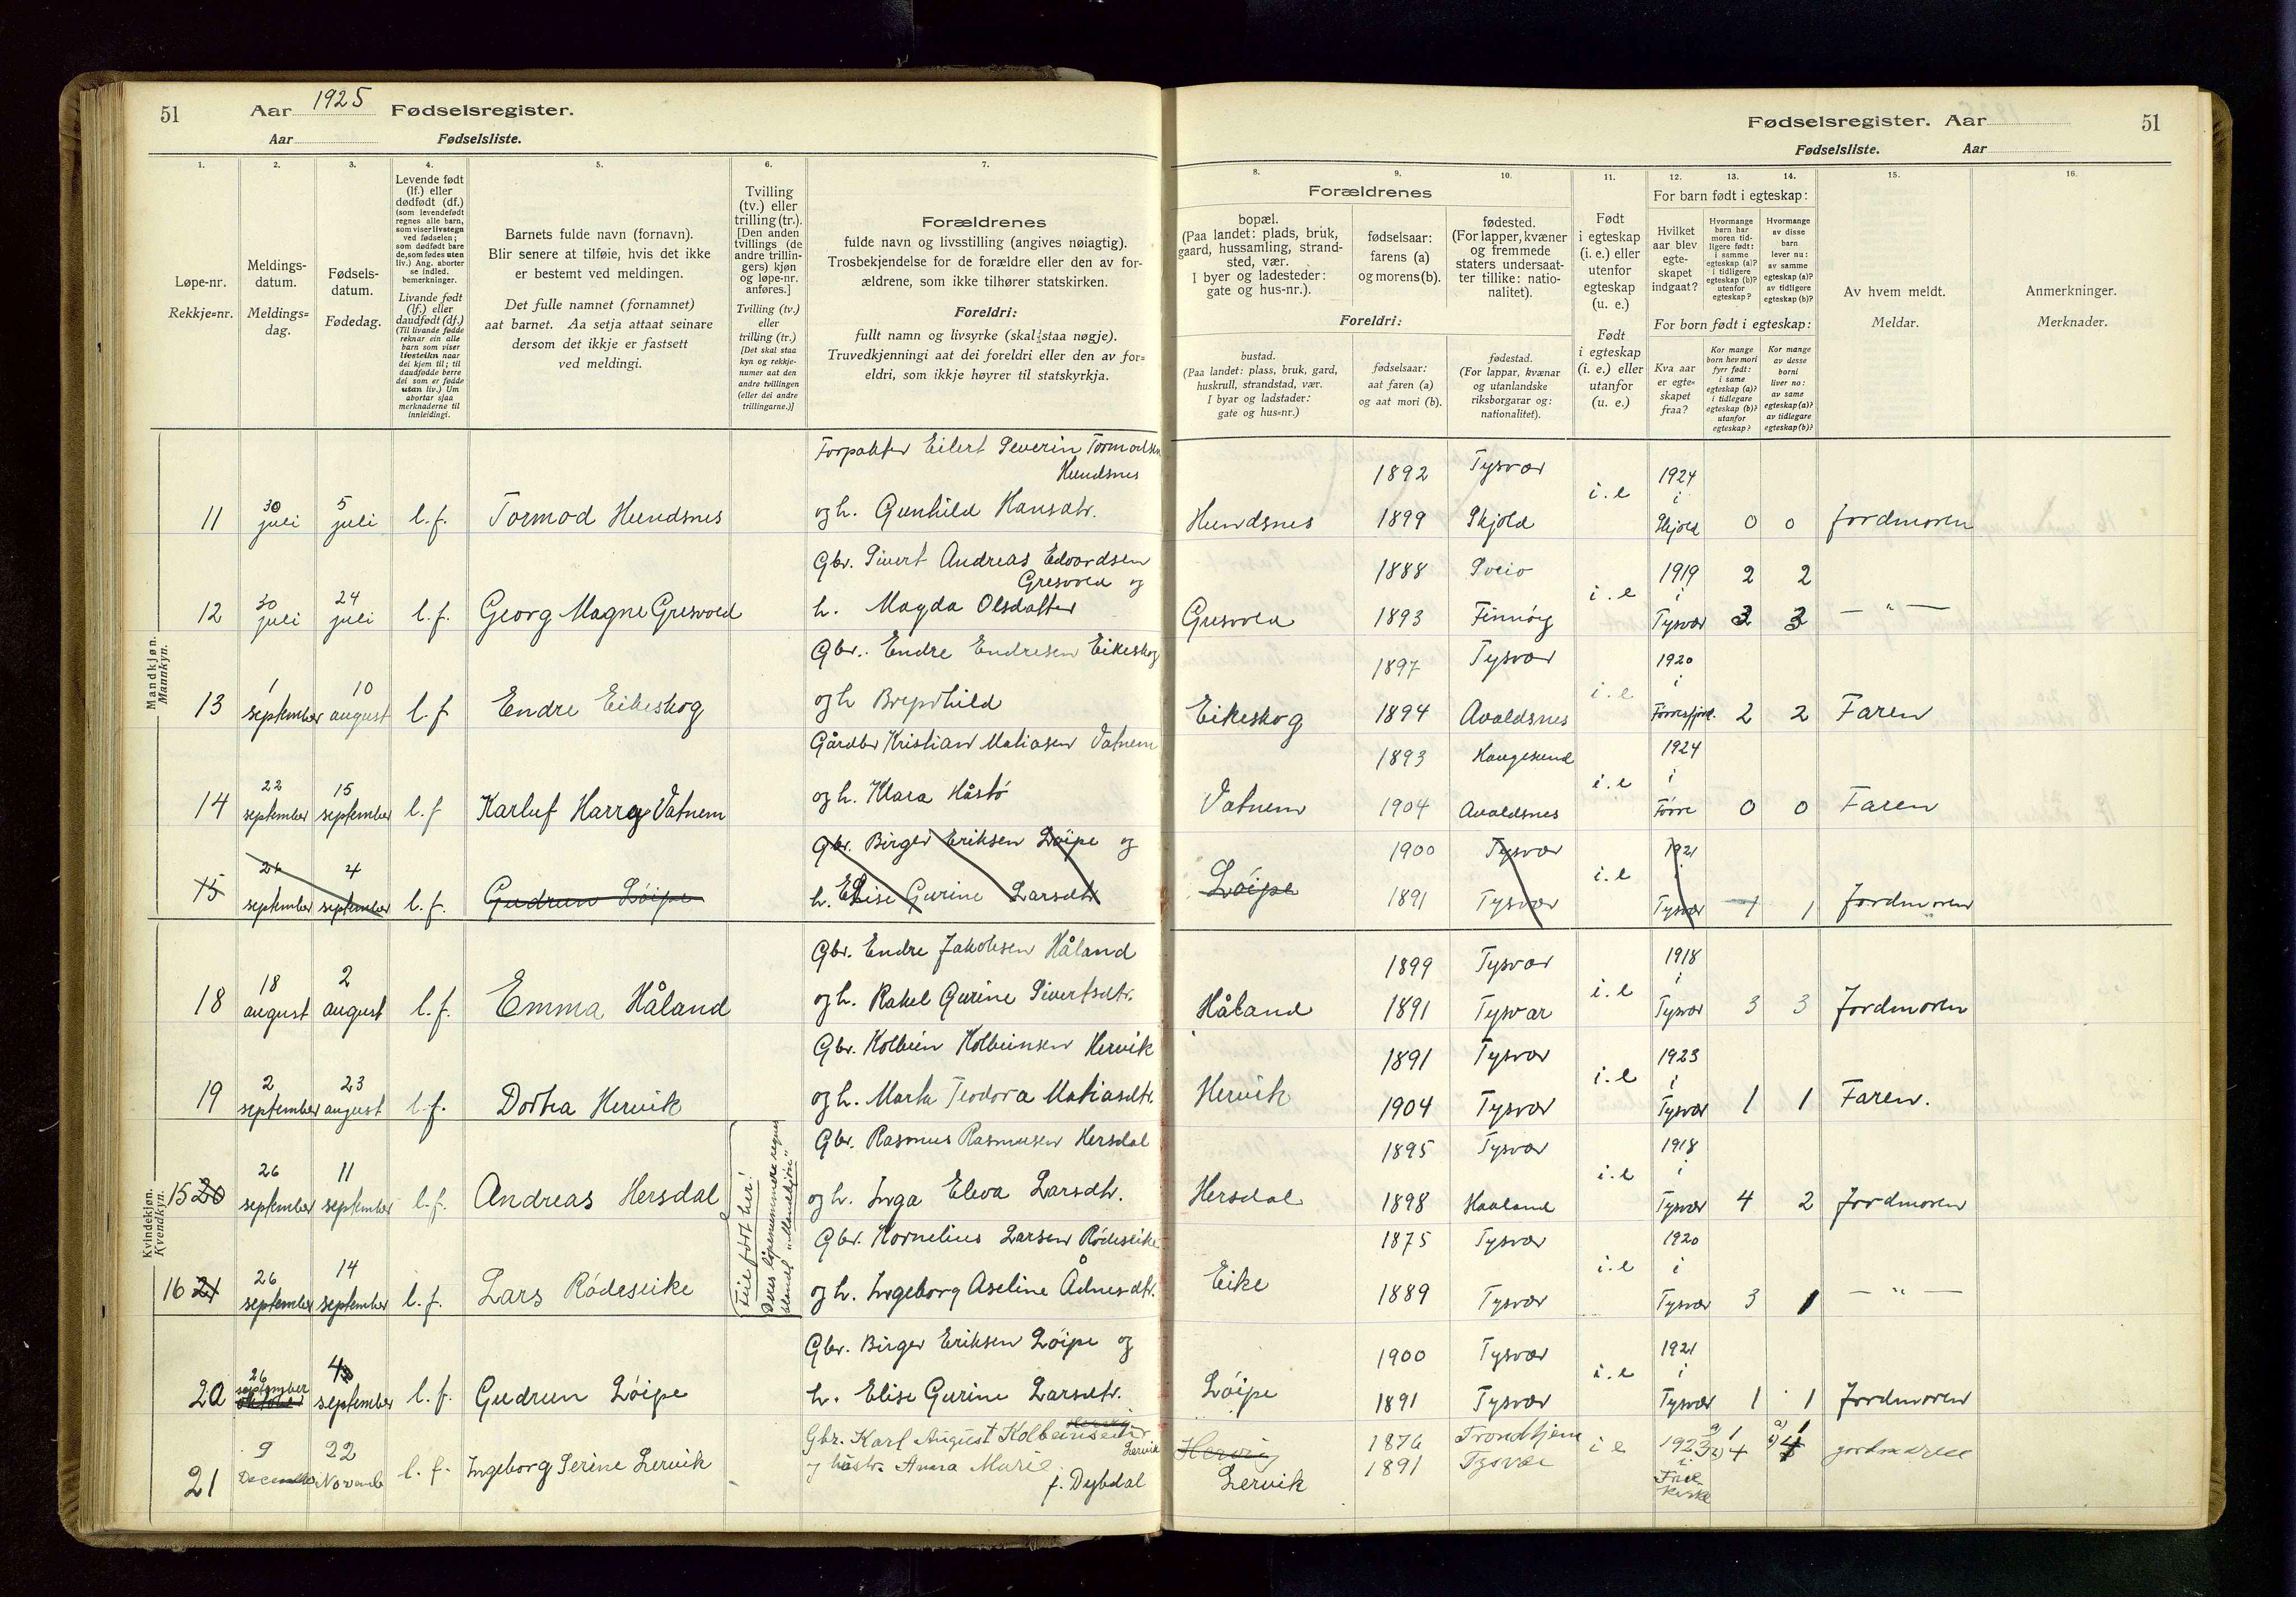 51
Aar 1925 Fødselsregister.
Aar Fødselsliste.
Fødselsregister. Aar
51
Fødselsliste. Aar
1.
Løpe-nr.
Rekkje=nr.
2.
Meldings-
datum.
Meldings=
dag.
3.
Fødsels-
datum.
Fødedag.
4.
Levende født
(lf.) eller
dødfødt (df.)
(som levendefødt
regnes alle barn,
som viser livstegn
ved fødselen;
som dødfødt bare
de, som fødes uten
liv.) Ang. aborter
se indled.
bemerkninger.
Livande født
(lf.) eller
daudfødt (df.)
(Til livande fødde
reknar ein alle
barn som viser
livsteikn naar
dei kjem til; til
daudfødde berre
dei som er fødde
utan liv.) Um
abortar sjaa
merknaderne til
innleidingi.
5.
Barnets fulde navn (fornavn).
Blir senere at tilføie, hvis det ikke
er bestemt ved meldingen.
Det fulle namnet (fornamnet)
aat barnet. Aa setja attaat seinare
dersom det ikkje er fastsett
ved meldingi.
6.
Tvilling
(tv.) eller
trilling (tr.).
[Den anden
tvillings (de
andre trillin-
gers) kjøn
og løpe-nr.
anføres.]
Tvilling (tv.)
eller
trilling (tr.)
[Det skal staa
kyn og rekkje-
numer aat den
andre tvillingen
(eller dei andre
trillingarne.)]
7.
Forældrenes
fulde navn og livsstilling (angives nøiagtig).
Trosbekjendelse for de forældre eller den av for-
ældrene, som ikke tilhører statskirken.
Foreldri:
fullt namn og livsyrke (skal staa nøgje).
Truvedkjenningi aat dei foreldri eller den av for=
eldri, som ikkje høyrer til statskyrkja.
8.
Forældrenes
bopæl.
(Paa landet: plads, bruk,
gaard, hussamling, strand-
sted, vær.
I byer og ladesteder:
gate og hus-nr.).
Foreldri:
bustad.
(Paa landet: plass, bruk, gard,
huskrull, strandstad, vær.
I byar og ladstader:
gate og hus-nr.)
9.
fødselsaar:
farens (a)
og morens (b).
fødselsaar:
aat faren (a)
og aat mori (b).
10.
fødested.
(For lapper, kvæner
og fremmede
staters undersaat-
ter tillike: natio-
nalitet).
fødestad.
(For lappar, kvænar
og utanlandske
riksborgarar og:
nationalitet).
11.
Født
i egteskap
(i. e.) eller
utenfor
egteskap
(u. e.)
Født
i egteskap
(i. e.) eller
utanfor
(u. e.)
For barn født i egteskap:
12.
Hvilket
aar blev
egte-
skapet
indgaat?
13.
Hvormange
barn har
moren tid-
ligere født:
i samme
egteskap (a)?
i tidligere
egteskap (b)?
utenfor
egteskap?
14.
Hvormange
av disse
barn
lever nu:
av samme
egteskap (a)?
av tidligere
egteskap (b)?
For born født i egteskap:
Kva aar
er egte=
skapet
fraa?
Kor mange
born hev mori
fyrr født:
i same
egteskap (a)?
i tidlegare
egteskap (b)?
utanfor
egteskap?
Kor mange
av desse
borni
liver no:
av same
egteskap (a)?
av tidlegare
egteskap (b)?
15.
Av hvem meldt.
Meldar.
16.
Anmerkninger.
Merknader.
Mandkjøn.
Mannkyn.
Forpakter Eilert Severin Tormodsen
Hundsnes 1892 Tysvær 1924
11 30 juli 5 juli l.f. Tormod Hundsnes og h. Gunhild Hansdtr. Hundsnes 1899 Skjold i.e i Skjold 0 0 Jordmoren
Gbr. Sivert Andreas Edvardsen
Gresvold og 1888 Sveio 1919 2 2
12 30 juli 24 juli l.f. Georg Magne Gresvold h. Magda Olsdatter Gresvold 1893 Finnøy i.e i Tysvær 3 3 — " —
Gbr. Endre Endresen Eikeskog 1897 Tysvær 1920
13 1 september 10 august l.f Endre Eikeskog og h Brynhild Eikeskog 1894 Avaldsnes i.e i 2 2 Faren
Gårdbr Kristian Matiasen Vatnem 1893 Haugesund 1924
14 22 september 15 september l.f Karluf Harry Vatnem og h. Klara Håstø Vatnem 1904 Avaldsnes i.e i Førre 0 0 Faren
Gbr. Birger Eriksen Løipe og 1900 Tysvær 1921
15 26 september 4 september l.f. Gudrun Løipe h. Elise Gurine Larsdtr Løipe 1891 Tysvær i.e i Tysvær 1 1 Jordmoren
Kvindekjøn.
Kvendkyn.
Gbr. Endre Jakobsen Håland 1899 Tysvær 1918
18 18 august 2 august l.f. Emma Håland og h. Rakel Gurine Sivertsdtr. Håland 1891 Tysvær i.e i Tysvær 3 3 Jordmoren
Gbr. Kolbein Kolbeinsen Hervik 1891 Tysvær 1923
19 2 september 23 august l.f. Dortea Hervik og h. Marta Teodora Matiasdtr. Hervik 1904 Tysvær i.e i Tysvær 1 1 Faren.
Gbr. Rasmus Rasmusen Hersdal 1895 Tysvær 1918
15 20 26 september 11 september l.f. Andreas Hersdal og h. Inga Eleva Larsdtr. Hersdal 1898 Haaland i.e i Tysvær 4 2 Jordmoren
Feil ført her!
Deres løpenummere regnes
blandt „Mandkjøn"
Gbr. Kornelius Larsen Rødeseike 1875 Tysvær 1920
16 21 26 september 14 september l.f. Lars Rødeseike og h. Ingeborg Aseline Ådnesdtr. Eike 1889 Tysvær i.e i Tysvær 3 1 — " —
Gbr. Birger Eriksen Løipe og 1900 Tysvær 1921
20 26 september oktober 4 september l.f. Gudrun Løipe h. Elise Gurine Larsdtr. Løipe 1891 Tysvær i.e i Tysvær 1 1 Jordmoren
Gbr. Karl August Kolbeinsen Lervik 1876 Trondhjem
21 9 December 22 Novemb l.f. Ingeborg Serine Lervik og hustr. Anna Marie f. Dybdal Lervik 1891 Tysvær i e 1923 i Frikirke a) 1 4 a) 1 4 jordmoren